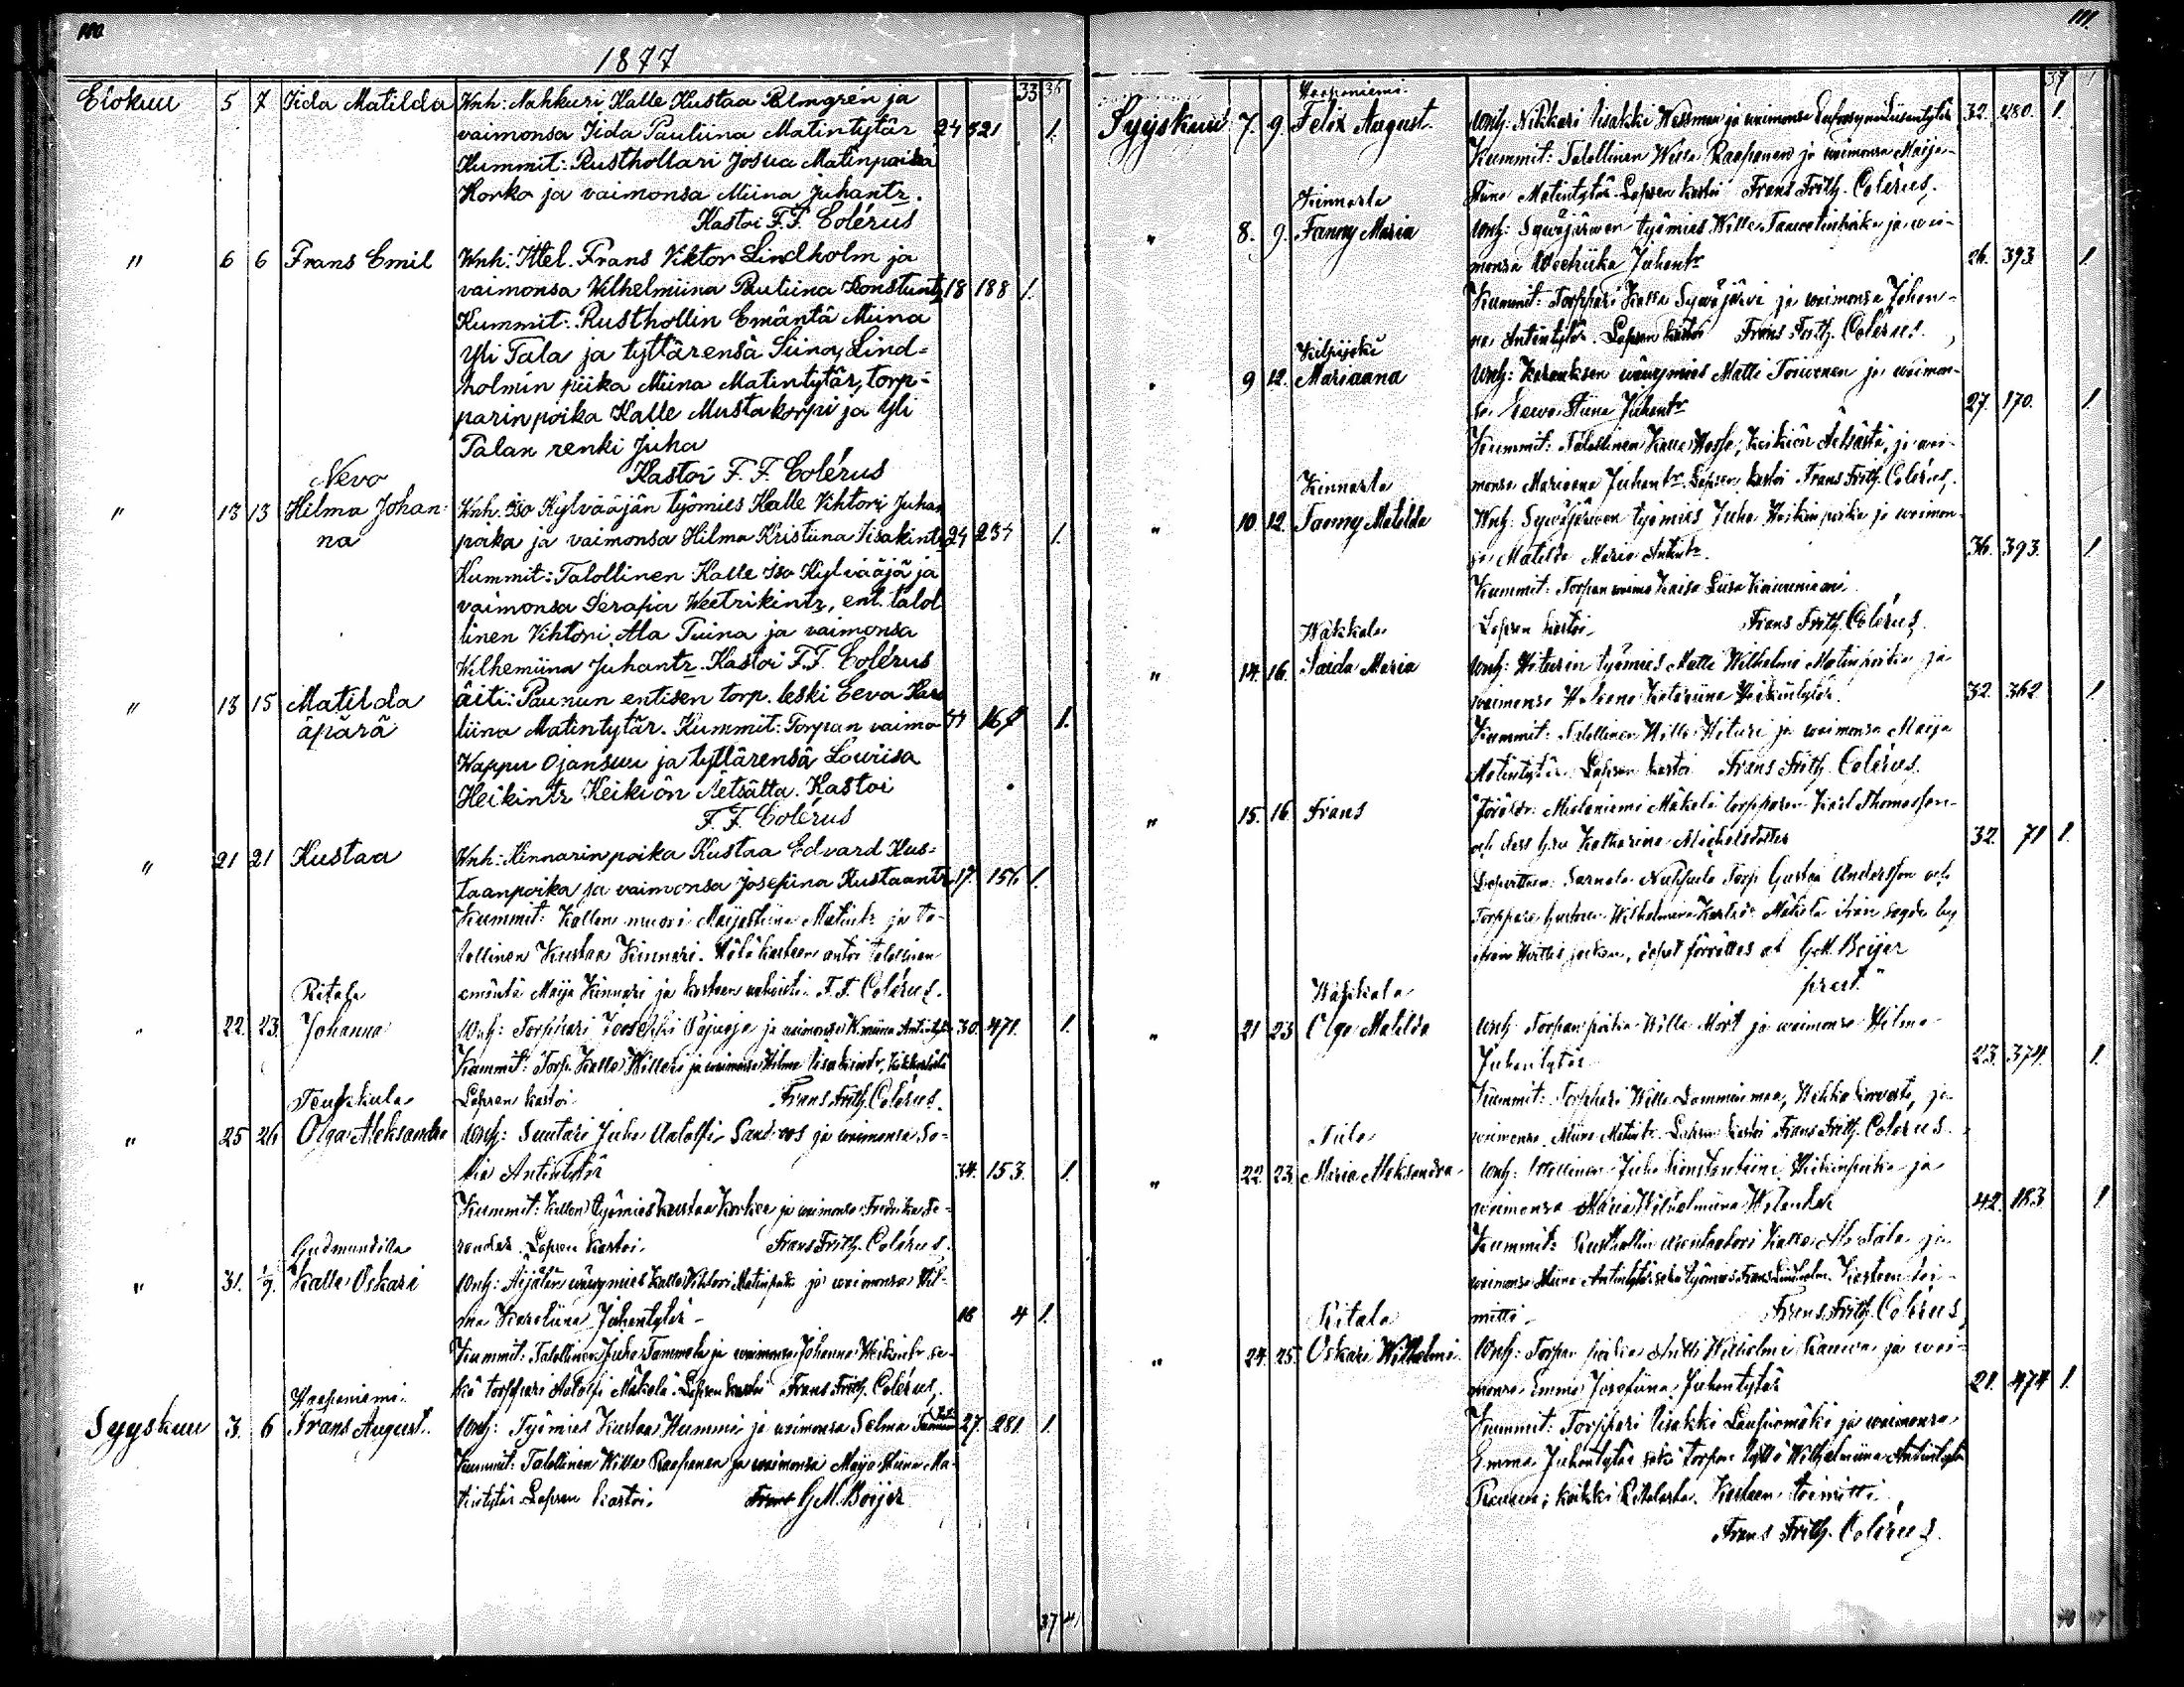 110
1877
33 36
Elokuu 5 7 Iida Matilda Wnh: Nahkuri Kalle Kustaa Palmgrén ja
vaimonsa Iida Pauliina Matintytär 24 521 1.
Kummit: Rusthollari Josua Matinpoika
Korko ja vaimonsa Miina Juhantr.
Kastoi F. F. Colérus
" 6 6 Frans Emil Wnh: Ittel. Frans Viktor Lindholm ja
vaimonsa Vilhelmiina Pauliina Konstantr 18 188 1.
Kummit: Rusthollin Emäntä Miina
Yli Tala ja tyttärensä Siina, Lind=
holmin piika Miina Matintytär, torp-
parin poika Kalle Mustakorpi ja Yli
Talan renki Juha
Kastoi F. F. Colérus
Nevo
" 13 13 Hilma Johan- Wnh. Iso Kylvääjän työmies Kalle Vihtori Juhan
na poika ja vaimonsa Hilma Kristiina Iisakintr 24 234 1.
Kummit: Talollinen Kalle Iso Kylvääjä ja
vaimonsa Serafia Weetrikintr, ent. talol
linen Vihtori Ala Tuina ja vaimonsa
Wilhemiina Juhantr. Kastoi F. F. Colérus
" 13 15 Matilda äiti: Paunun entisen torp. leski Eeva Karo
äpärä liina Matintytär. Kummit: Torpan vaimo 44 164 1.
Wappu Ojansuu ja tyttärensä Lowiisa
Heikintr Keikiön Äetsältä. Kastoi
F. F. Colérus
" 21 21 Kustaa Wnh: Kinnarin poika Kustaa Edvard Kus=
taanpoika ja vaimonsa Josefiina Kustaantr 17. 156 1.
Kummit: Kallon muori Maijastiina Matintr ja ta-
lollinen Kustaa Kinnari. Hätäkasteen antoi talollinen
emäntä Maija Kinnari ja kasteen vahvisti F. F. Colérus.
Ritala
" 22. 23. Johanna Wnh: Torppari Joosehki Pajuoja ja waimonsa Wmiina Antintytär 30. 471. 1.
Kummit: Torp. Kalle Willari ja waimonsa Hilma Iisakintr,
Lapsen kastoi Frans Frith. Colérus.
Teukkula
" 25 26 Olga Aleksandra Wnh: Suutari Juha Aatolfi Sand ja waimonsa So-
fia Antintytär 34. 153. 1.
Kummit: Kallon työmies Kustaa Korkee ja waimonsa Fredrika
Lapsen kastoi. Frans Frith. Colérus.
Gudmundila
" 31. 1/9. Kalle Oskari Wnh: Äijälän wäwymies Kalle Vihtori Matinpoika ja waimonsa Wil-
ma Karoliina Juhantytär 16 4 1.
Kummit: Talollinen Juha Tammela ja waimonsa Johanna Heikintr se-
kä torppari Aatolfi Mäkelä. Lapsen kastoi Frans Frith. Colérus.
Haapaniemi.
Syyskuu 3. 6 Frans August. Wnh: Työmies Kustaa Hummi ja waimonsa Selma 27. 281. 1.
Kummit: Talollinen Wille Raapanen ja waimonsa Maija Stiina Ma-
tintytär. Lapsen kastoi. G.M. Boijer
37 41
111.
37 1
Haapaniemi.
Syyskuu 7. 9. Felix August. Wnh: Nikkari Iisakki Wessman ja waimonsa 32. 280. 1.
Kummit: Talollinen Wille Raapanen ja waimonsa Maija-
stiina Matintytär. Lapsen kastoi Frans Frith. Colérus.
Kinnarla
" 8. 9. Fanny Maria Wnh: Sywäjärwen työmies Wille Taawetinpoika ja wai-
monsa Juhantr 26. 393. 1
Kummit: Torppari Kalle Sywäjärvi ja waimonsa Johan-
na Antintytär. Lapsen kastoi Frans Frith. Colérus.
Kilpijoki
" 9 12. Mariaana Wnh: wäwymies Matti Toiwonen ja waimon-
sa Eewa Stiina Juhantr 27. 170. 1
Kummit: Talollinen Kalle Keikiön Äetsästä, ja wai-
monsa Mariaana Juhantr. Lapsen kastoi Frans Frith. Colérus.
Kinnarla
" 10. 12. Fanny Matilda Wnh: Sywäjärwen työmies Juha Heikinpoika ja waimon-
sa Matilda Maria Antintr. 36. 393. 1
Kummit: Torpan waimo Kaisa Liisa
Lapsen kastoi. Frans Frith. Colérus.
Wakkala
" 14. 16. Saida Maria Wnh: Hiturin työmies Matti Wilhelmi Matinpoika ja
waimonsa Helena Katariina Heikintytär. 32. 362 1
Kummit: Talollinen Wille Hituri ja waimonsa Maija
Matintytär. Lapsen kastoi Frans Frith. Colérus.
" 15. 16. Frans Föräldr: Mäkelä torpparen Karl Thomasson
och dess hru Katharina Michelsdotter 32. 71 1.
Torp. Gustaf Andersson och
G.M. Boijer
prest."
Wakkala
" 21 23 Olga Matilda Wnh: Torpan poika Wille Mort ja waimonsa Hilma
Juhantytär 23. 374. 1.
Kummit: Torppari Wille Lamminmaa, ja
waimonsa Miina Matintr. Lapsen kastoi Frans Frith. Colérus.
Tala
" 22. 23. Maria Aleksandra Wnh: Ittellinen Juha Konstantiini Heikinpoika ja
waimonsa Maria Wilhelmiina 42. 183 1
Kummit: Rusthollin Kalle Ala Tala ja
waimonsa Miina Antintytär sekä työmies Frans Lindholm. Kasteen toi-
mitti. Frans Frith. Colérus.
Ritala
" 24. 25. Oskari Wilhelmi Wnh: Torpan poika Antti Wilhelmi ja wai-
monsa Emma Josefiina Juhantytär 21. 474 1.
Kummit: Torppari Iisakki ja waimonsa
Emma Juhantytär sekä torpan tyttö Wilhelmiina Antintytär
kaikki Ritalasta. Kasteen toimitti
Frans Frith. Colérus.
40 47